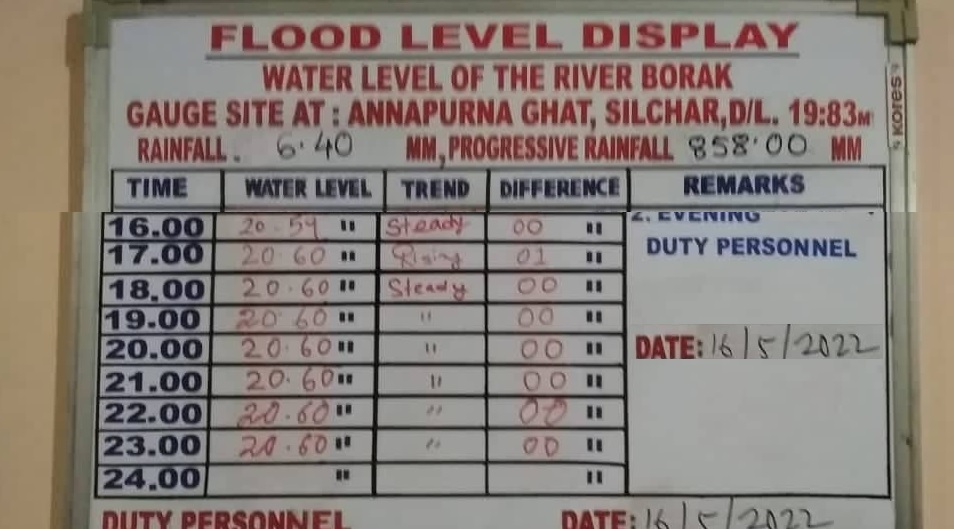 FLOOD LEVEL DISPLAY
WATER LEVEL OF THE RIVER BORAK
GAUGE SITE AT : ANNAPURNA GHAT, SILCHAR, D/L. 19:83M
RAINFALL. 6.40 MM, PROGRESSIVE RAINFALL 858.00 MM
TIME WATER LEVEL TREND DIFFERENCE REMARKS
16.00 20.59 " Steady 00 " 2. EVENING
17.00 20.60 " Rising 01 " DUTY PERSONNEL
18.00 20.60 " Steady 00 "
19.00 20.60 " " 00 "
20.00 20.60 " " 00 " DATE: 16/5/2022
21.00 20.60 " " 00 "
22.00 20.60 " " 00 "
23.00 20.60 " " 00 "
24.00 " "
DUTY PERSONNEL DATE: 16/5/2022
Kores